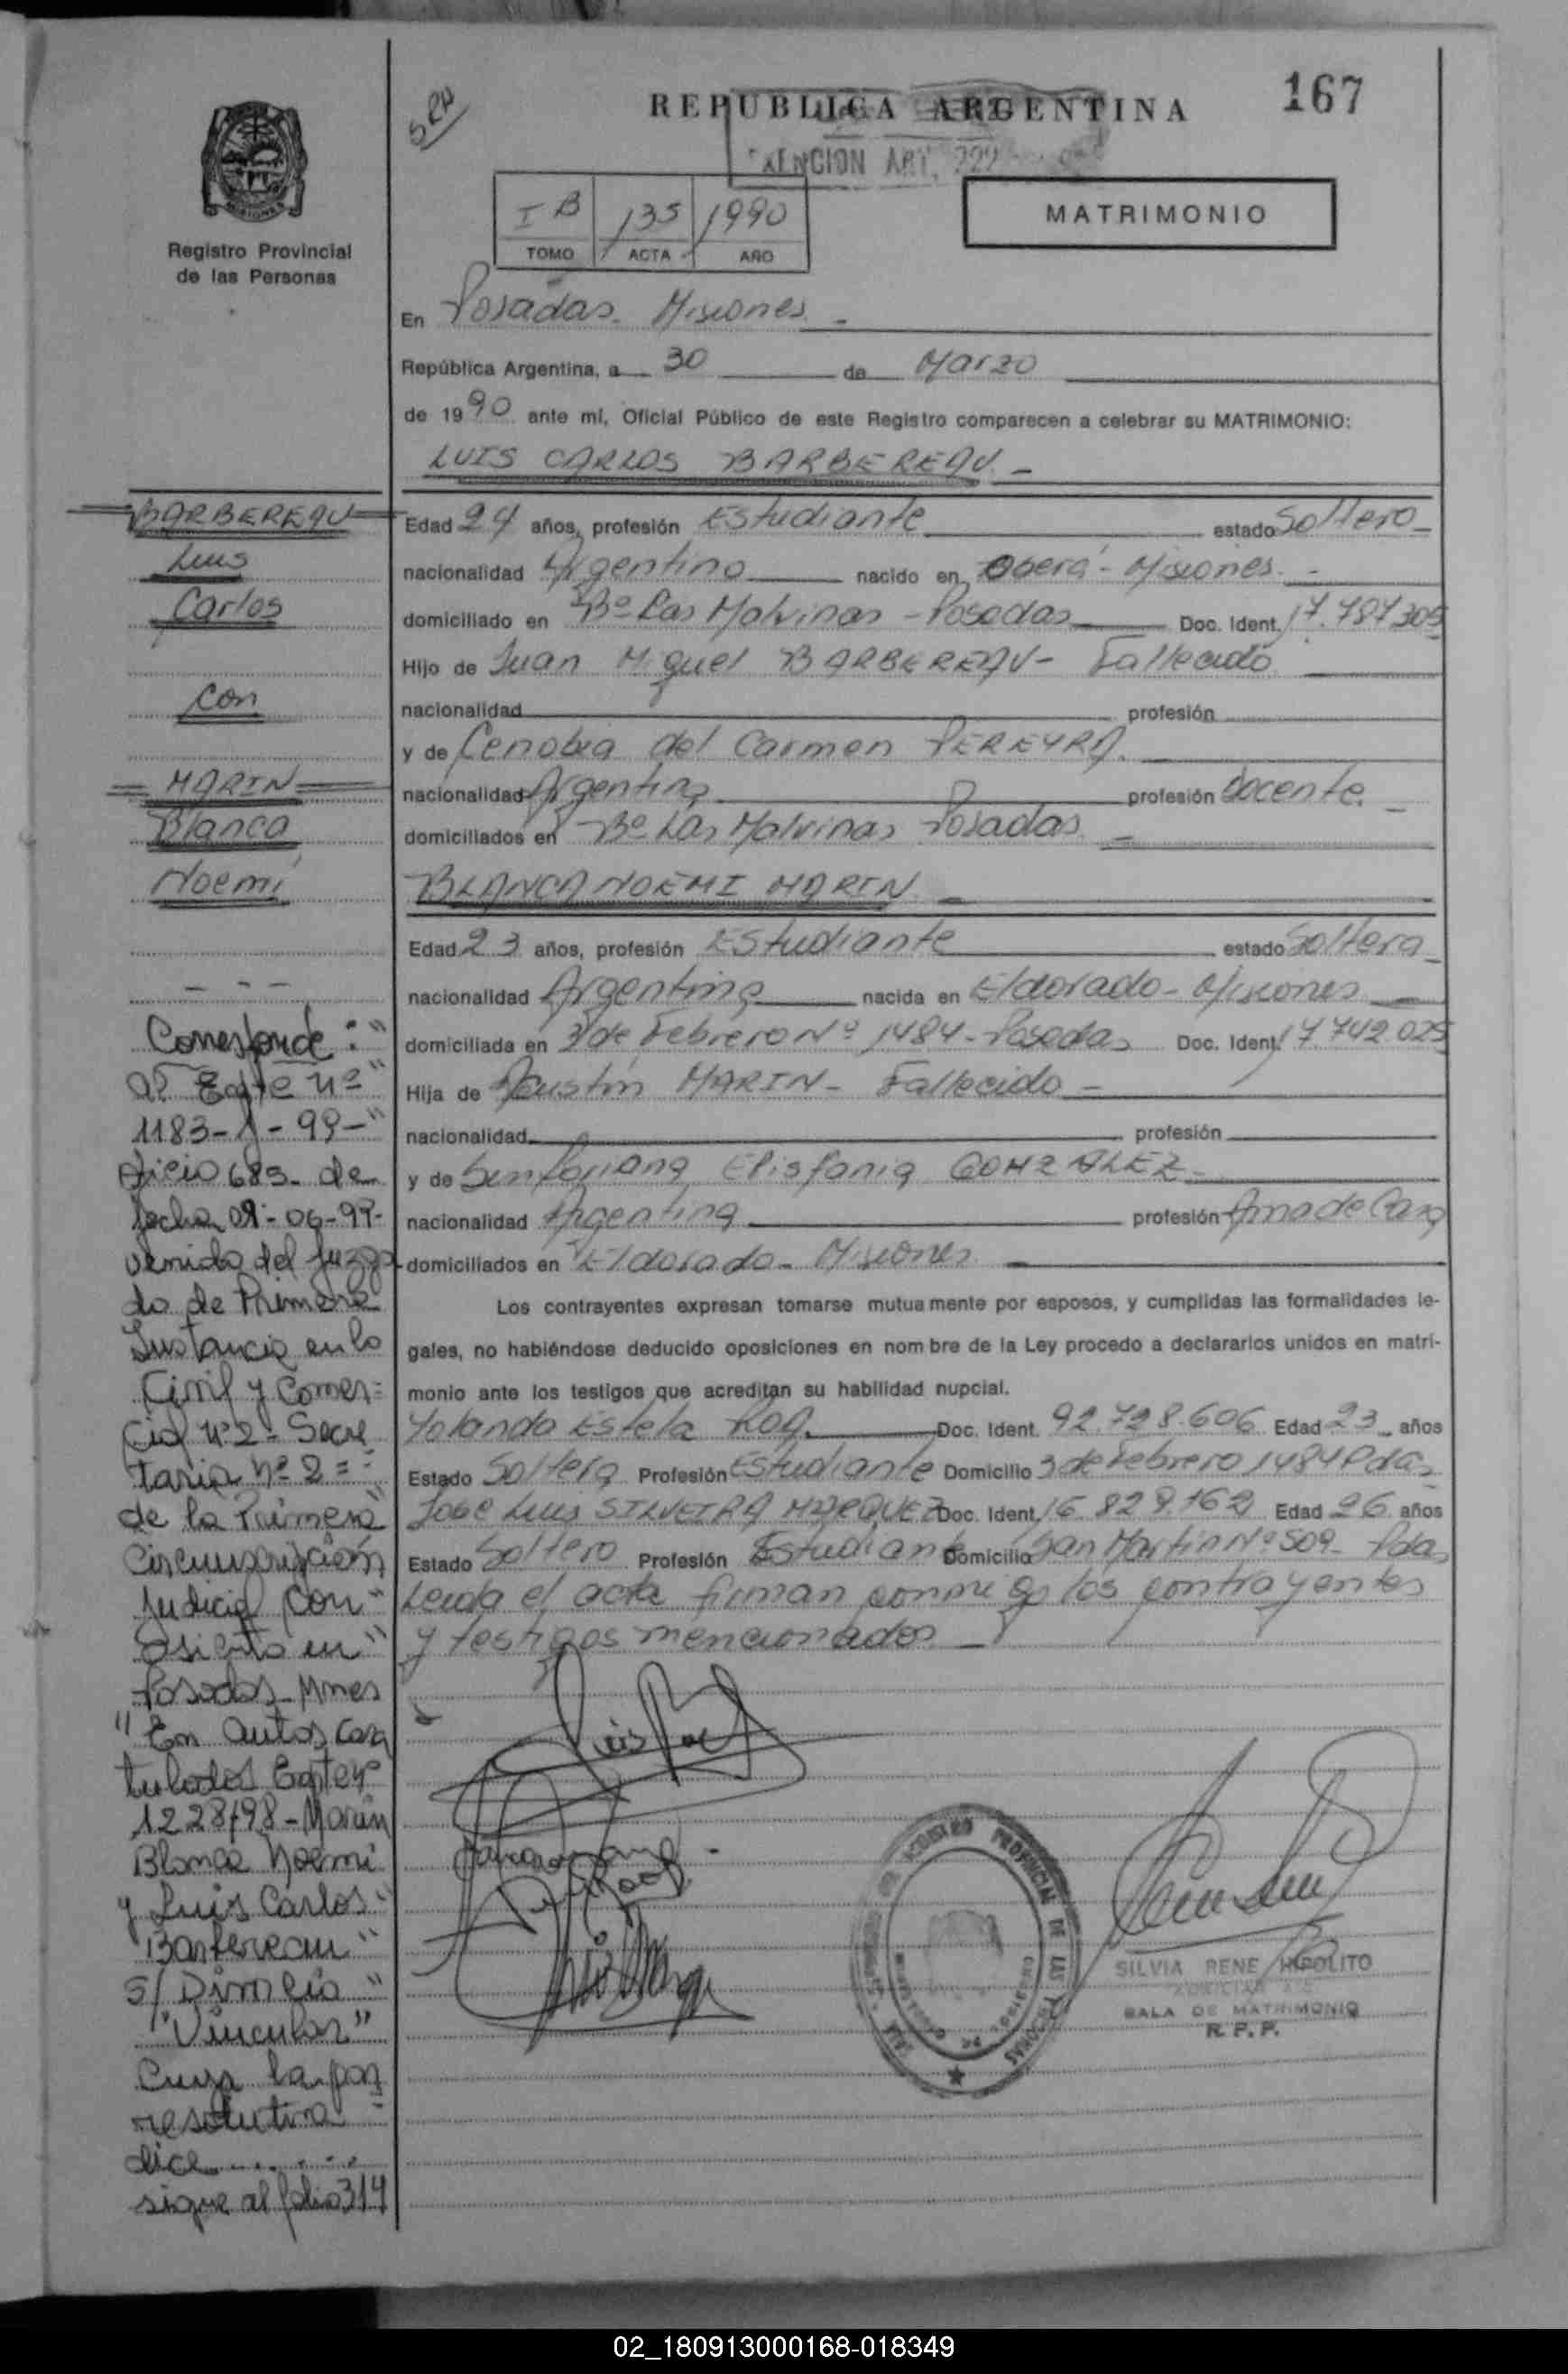 SRH
REPUBLICA ARGENTINA
167
EXENCION ART. 222
I B 135 1990
TOMO ACTA AÑO
MATRIMONIO
Registro Provincial
de las Personas
En Posadas - Misiones -
República Argentina, a 30 de Marzo
de 1990 ante mí, Oficial Público de este Registro comparecen a celebrar su MATRIMONIO:
LUIS CARLOS BARBEREAU -
Edad 24 años, profesión Estudiante estado Soltero -
nacionalidad Argentino nacido en Oberá - Misiones -
domiciliado en Bº Las Malvinas - Posadas Doc. Ident. 17.787305
Hijo de Juan Miguel BARBEREAU - Fallecido
nacionalidad profesión
y de Cenobia del Carmen PEREYRA.
nacionalidad Argentina profesión docente. -
domiciliados en Bº Las Malvinas Posadas -
BLANCA NOEMI MARIN -
Edad 23 años, profesión Estudiante estado Soltera -
nacionalidad Argentina nacida en Eldorado - Misiones
domiciliada en 3 de Febrero Nº 1484 - Posadas Doc. Ident. 17.742.025
Hija de Agustín MARIN - Fallecido -
nacionalidad profesión
y de Sinforiana Epifania GONZALEZ -
nacionalidad Argentina profesión Ama de Casa
domiciliados en Eldorado - Misiones
Los contrayentes expresan tomarse mutuamente por esposos, y cumplidas las formalidades le-
gales, no habiéndose deducido oposiciones en nombre de la Ley procedo a declararlos unidos en matri-
monio ante los testigos que acreditan su habilidad nupcial.
Yolanda Estela Roa Doc. Ident. 92.728.606 Edad 23 años
Estado Soltera Profesión Estudiante Domicilio 3 de Febrero 1484 Pdas
Jose Luis SILVEIRA MARQUEZ Doc. Ident. 16.829.162 Edad 26 años
Estado Soltero Profesión Estudiante Domicilio San Martin Nº 509 - Pdas
Leida el acta firman conmigo los contrayentes
y testigos mencionados -
BARBEREAU
Luis
Carlos
Con
MARIN
Blanca
Noemí
- - -
Corresponde: "
al Expte nº "
1183-J-99-"
oficio 683- de
fecha 09-06-99-
venido del Juzga
do de Primera
Instancia en lo
Civil y Comer=
cial nº 2 - Secre
taria nº 2 =
de la Primera"
Circunscripción
Judicial con "
asiento en "
Posadas - Mnes
"En autos cara
tulados Expte nº
1228/98 - Marin
Blanca Noemi
y Luis Carlos "
Barbereau "
S/ Divorcio "
"Vincular"
Cuya la par
resolutiva =
dice......
sigue al folio 314
REGISTRO PROVINCIAL DE LAS PERSONAS
SILVIA RENE HIPOLITO
SALA DE MATRIMONIO
R. P. P.
02_180913000168-018349